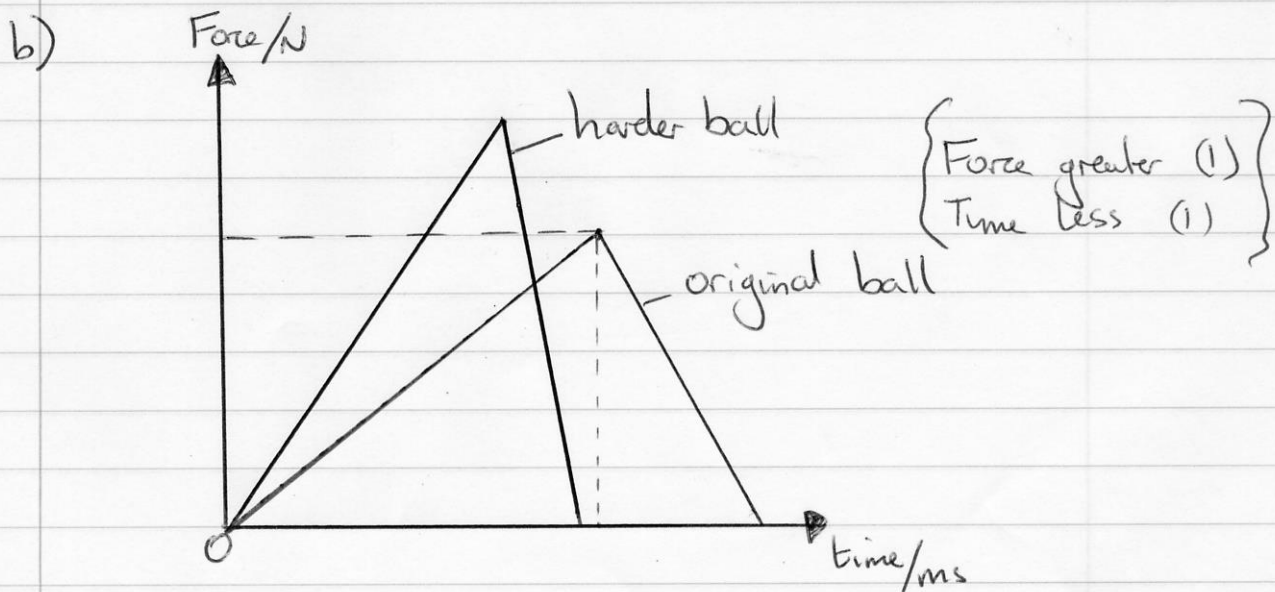 b)
Force/N
harder ball
Force greater (1)
Time less (1)
original ball
O
time/ms